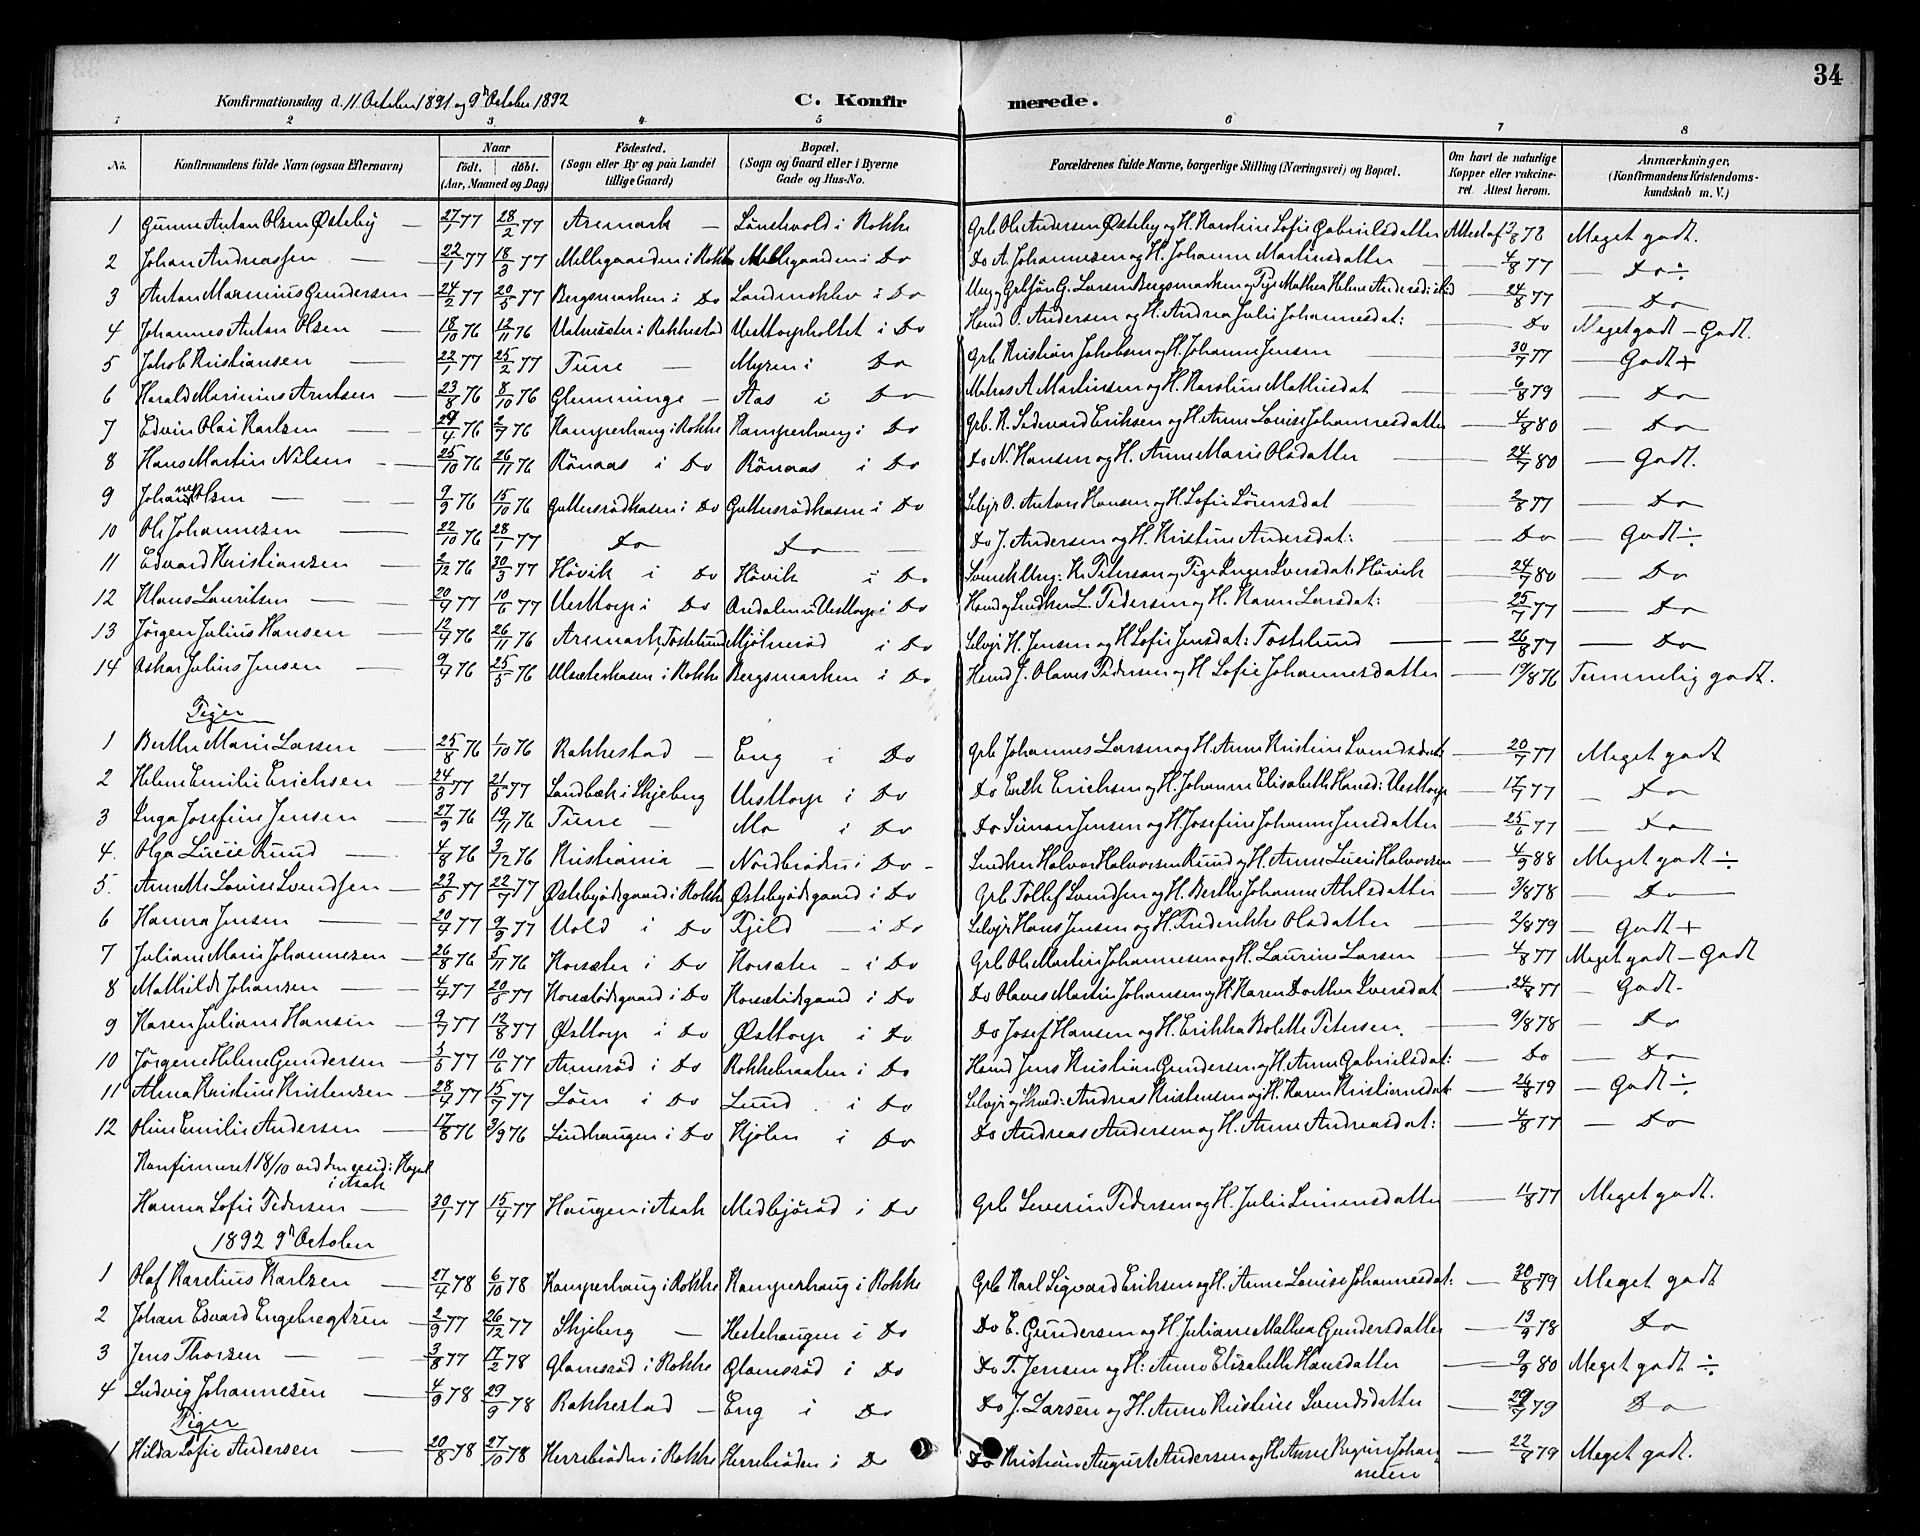 34
Konfirmationsdag d. 11. October 1891 og 9d October 1892 C. Konfirmerede.
1 2 3 4 5 6 7 8
No. Konfirmandens fulde Navn (ogsaa Efternavn) Naar født. døbt. (Aar, Maaned og Dag) Fødested. (Sogn eller By og paa Landet tillige Gaard) Bopæl. (Sogn og Gaard eller i Byerne Gade og Hus-No. Forældrenes fulde Navne, borgerlige Stilling (Næringsvei) og Bopæl. Om havt de naturlige Kopper eller vakcineret. Attest herom. Anmærkninger. (Konfirmandens Kristendomskundskab m. V.)
1 Gunne Anton Olsen Østeby — 27/1 77 28/2 77 Aremark — i Rokke Grb. Ole Andersen Østeby og H. Karoline Sofie Gabrielsdatter Attest af 78 Meget godt.
2 Johan Andreassen — 22/1 77 18/3 77 Millegaarden i Rokke Millegaarden i Do Do A. Johannesen og H. Johanne Martinsdatter — 4/8 77 — Do ÷
3 Anton Marinius Gundersen — 24/2 77 20/5 77 Bergsmarken i Do i Do G. Larsen Bergsmarken og Pige Mathea Helene 24/8 77 — Do
4 Johannes Anton Olsen — 18/10 76 12/11 76 i Rakkestad Vesttorpholtet i Do Husmd O. Andersen og H. Andrea Julie Johannesdat: — Do Meget godt — Godt.
5 Jakob Kristiansen — 22/1 77 25/2 77 Tune — Myren i Do Grb Kristian Jakobsen og H. Johanne Jensen — 30/7 77 — Godt +
6 Harald Marinius Arntsen — 23/8 76 8/10 76 Glemminge — Aas i Do Matros A. Martinsen og H. Karoline Mathisdat — 6/8 79 — Do
7 Edvin Olai Karlsen — 29/4 76 2/7 76 Kamperhaug i Rokke Kamperhaug i Do Grb. K. Sedevard Eriksen og H. Anne Louise Johannesdatter 4/8 80 — Do
8 Hans Martin Nilsen — 25/10 76 26/11 76 Rönaas i Do Rönaas i Do Do N. Hansen og H. Anne Marie Olsdatter — 24/7 80 — Godt.
9 Johannes Olsen — 9/9 76 15/10 76 Guttersrödkasen i Do Guttersrödkasen i Do Selvjr O. Anton Hansen og H. Sofie Sörensdat — 2/8 77 — Do
10 Ole Johannesen — 22/10 76 28/1 77 Do Do — Do J. Andersen og H. Kristine Andersdat: — Do — Godt ÷
11 Edvard Kristiansen — 2/12 76 30/3 77 Hövik i Do Hövik i Do K. Petersen og Pige Inger Iversdat: Hövik 24/7 80 — Do
12 Klaus Lauritsen — 20/4 77 10/6 77 Vesttorp i Do Vesttorp i Do L. Pedersen og H. Karen Larsdat: 25/7 77 — Do
13 Jörgen Julius Hansen — 12/4 76 26/11 76 Aremark, Tostelund Mjölneröd i Do Selvjr H. Jensen og H. Sofie Jensdat: Tostelund — 26/8 77 — Do
14 Oskar Julius Jensen — 9/4 76 25/5 76 Ulsæterkasen i Rokke Bergsmarken i Do Husmd J. Olaves Pedersen og H. Sofie Johannesdatter — 19/8 76 Temmelig godt.
Piger
1 Berthe Marie Larsen — 25/8 76 1/10 76 Rakkestad — Eng i Do Grb Johannes Larsen og H. Anne Kristine Svendsdat — 20/7 77 Meget godt
2 Helene Emilie Erichsen — 24/3 77 21/5 77 Sandbæk i Skjeberg Vesttorp i Do Do Erik Erichsen og H. Johanne Elisabeth Hansd: Vesttorp — 17/7 77 — Do
3 Inga Josefine Jensen — 27/9 76 19/11 76 Tune — Mo i Do Do Simon Jensen og H. Josefine Johanne Jensdatter — 25/6 77 — Do
4. Olga Lucie Ruud — 4/8 76 3/12 76 Kristiania — Nordbröden i Do Snedker Halvor Halvorsen Ruud og H. Anne Lucie Halvorsen 4/9 88 Meget godt ÷
5. Annette Lovise Svendsen — 23/5 77 22/7 77 Østebyödegaard i Rokke Østebyödegaard i Do Grb Tollef Svendsen og H. Berthe Johanne Akselsdatter — 3/8 78 — Do
6 Hanna Jensen — 20/4 77 9/9 77 Vold i Do Fjeld — i Do Selvjr Hans Jensen og H. Frederikke Olsdatter — 2/8 79 — Godt +
7 Juliane Marie Johannesen — 26/8 76 5/11 76 Korsæter i Do Korsæter — i Do Grb Ole Martin Johannesen og H. Laurine Larsen — 4/8 77 Meget godt — Godt
8 Mathilde Johansen — 4/4 77 20/8 77 Korsætödegaard i Do Korsætödegaard i Do Do Olaves Martin Johansen og H. Karen Dorthea Iversdat — 24/8 77 — Godt.
9 Karen Juliane Hansen — 9/7 77 12/8 77 Østtorp i Do Østtorp i Do Do Josef Hansen og H. Erikka Bolette Petersen. — 9/8 78 — Do
10 Jörgine Helene Gundersen — 3/5 77 10/6 77 Anneröd i Do Rokkebraaten i Do Husmd Jens Kristian Gundersen og H. Anne Gabrielsdat: — Do — Do
11 Alma Kristine Kristensen — 28/4 77 15/7 77 Löen i Do Lund. i Do Selvjr og Skræd: Andreas Kristensen og H. Karen Kristiansdat — 26/8 79 — Godt ÷
12 Oline Emilie Andersen — 17/8 76 3/9 76 Lindhaugen i Do Kjölen i Do Do Andreas Andersen og H. Anne Andreasdat: — 4/8 77 — Do
Konfirmeret 18/10 ved den resid: Kapel i Asak
Hanna Sofie Pedersen — 30/1 77 15/4 77 Haugen i Asak Medbjöröd i Do Grb Severin Pedersen og H. Julie Simensdatter — 11/8 77 Meget godt.
1892 9d October
1 Olaf Karelius Karlsen — 27/4 78 6/10 78 Kamperhaug i Rokke Kamperhaug i Rokke Grb Karl Sigvard Eriksen og H. Anne Lovise Johannesdat: — 30/8 79 Meget godt
2 Johan Edvard Engebregtsen 2/9 77 26/12 77 Skjeberg — Hestehaugen i Do Do E. Gundersen og H. Juliane Mathea Gundersdatter — 13/9 78 Do
3 Jens Thorsen — 3/8 77 17/2 78 Glamsröd i Rokke Glamsröd i Do Do T. Jensen og H: Anne Elisabeth Hansdatter — 9/9 80 Meget godt ÷
4 Ludvig Johannesen — 4/9 78 29/9 78 Rakkestad — Eng i Do Do J. Larsen og H. Anne Kristine Svendsdatter — 29/7 79 Do
Piger
1 Hilda Sofie Andersen — 20/8 78 27/10 78 Herrebröden i Rokke Herrebröden i Do Do Kristian August Andersen og H. Anne Regine Johannesen — 22/8 79 Meget godt.